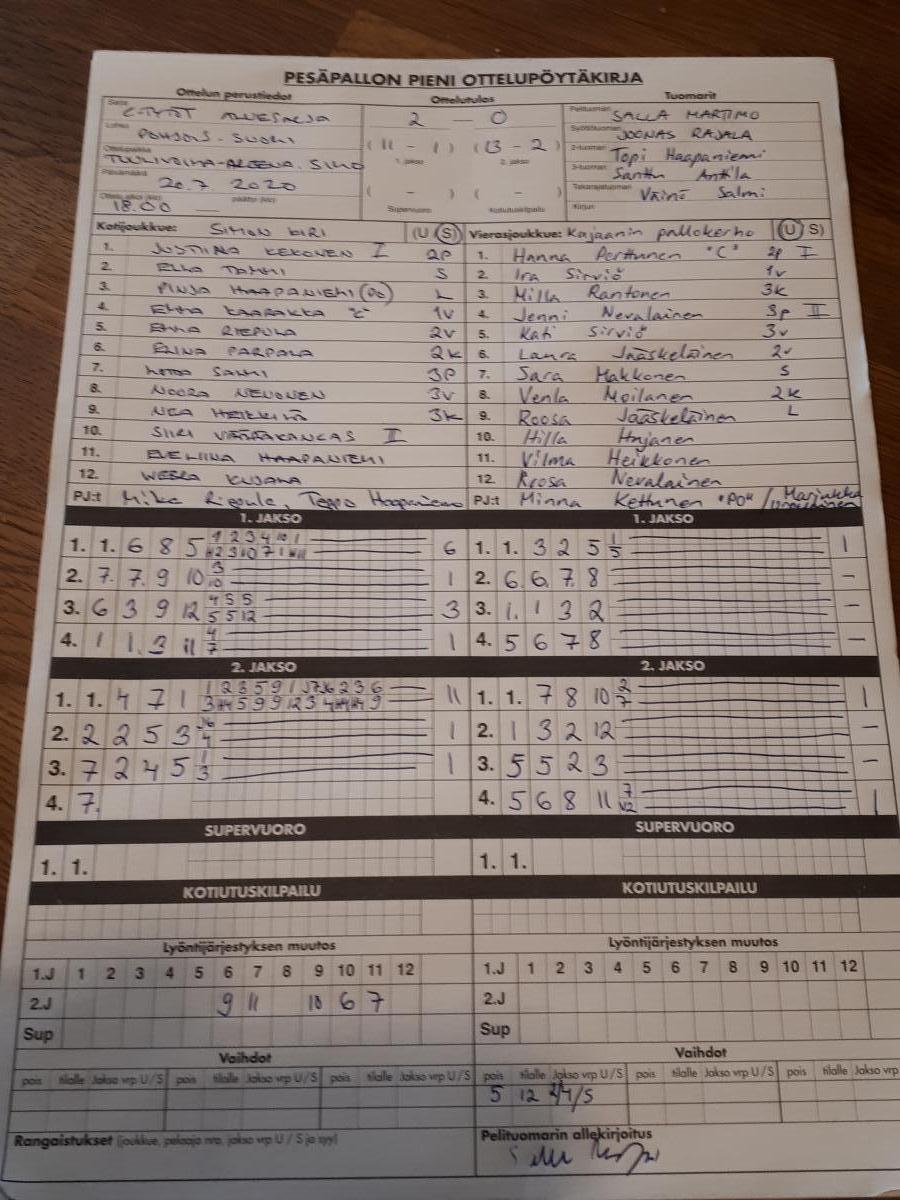 PESÄPALLON PIENI OTTELUPÖYTÄKIRJA
Ottelun perustiedot Ottelutulos Tuomarit
Sarja C-TYTÖT ALUESARJA 2 - 0 Pelituomari SALLA MARTIMO
Lohko POHJOIS-SUOMI (11 - 1) (13 - 2) Syöttötuomari JOONAS RAJALA
Ottelupaikka TUULIVOIMA-AREENA, SIMO 1. jakso 2. jakso 2-tuomari Topi Haapaniemi
Päivämäärä 20.7 2020 3-tuomari Santtu Anttila
Ottelu alkoi (klo) 18.00 päättyi (klo) ( - ) ( - ) Takarajatuomari Väinö Salmi
Supervuoro Kotiutuskilpailu Kirjuri
Kotijoukkue: SIMON KIRI (U S) Vierasjoukkue: Kajaanin pallokerho (U S)
1. JUSTIINA KEKONEN I 2P 1. Hanna Perttunen "C" 2p I
2. ELLA TAMMI S 2. Ira Sirviö 1v
3. PINJA HAAPANIEMI L 3. Milla Rantonen 3k
4. EMMA KAARAKKA "C" 1V 4. Jenni Nevalainen 3p II
5. EMMA RIEPULA 2V 5. Kati Sirviö 3v
6. ELINA PARPALA 2K 6. Laura Jääskeläinen 2v
7. SALMI 3P 7. Sara Makkonen S
8. NOORA NENONEN 3V 8. Venla Moilanen 2k
9. NEA HEIKKILÄ 3K 9. Roosa Jääskeläinen L
10. SIIRI II 10. Hilla
11. EVELIINA HAAPANIEMI 11. Vilma Heikkonen
12. WEERA KUJALA 12. Roosa Nevalainen
PJ:t Mika Teppo Haapaniemi PJ:t Minna Kettunen "PO" / Marjukka
1. JAKSO 1. JAKSO
1. 1. 6 8 5 6 1. 1. 3 2 5 1/5 1
2. 7. 7 9 10 3/10 1 2. 6. 6 7 8 –
3. 6 3 9 12 4 5 5 / 5 5 12 3 3. 1. 1 3 2 –
4. 1 1. 3 11 4/7 1 4. 5 6 7 8 –
2. JAKSO 2. JAKSO
1. 1. 4 7 1 11 1. 1. 7 8 10 2/7 1
2. 2 2 5 3 1 2. 1 3 2 12 –
3. 7 2 4 5 1/3 1 3. 5 5 2 3 –
4. 7. 4. 5 6 8 11 7/12 1
SUPERVUORO SUPERVUORO
1. 1. 1. 1.
KOTIUTUSKILPAILU KOTIUTUSKILPAILU
Lyöntijärjestyksen muutos Lyöntijärjestyksen muutos
1.J 1 2 3 4 5 6 7 8 9 10 11 12 1.J 1 2 3 4 5 6 7 8 9 10 11 12
2.J 9 11 10 6 7 2.J
Sup Sup
Vaihdot Vaihdot
pois tilalle Jakso vrp U / S pois tilalle Jakso vrp U / S pois tilalle Jakso vrp U / S pois tilalle Jakso vrp U / S pois tilalle Jakso vrp U / S pois tilalle Jakso vrp
5 12 2/4/S
Rangaistukset (joukkue, pelaaja nro, jakso vrp U / S ja syy) Pelituomarin allekirjoitus